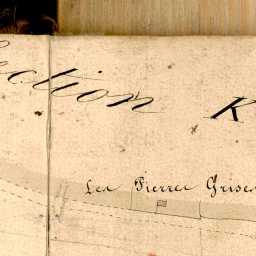 ection K
Les Pierres Grises